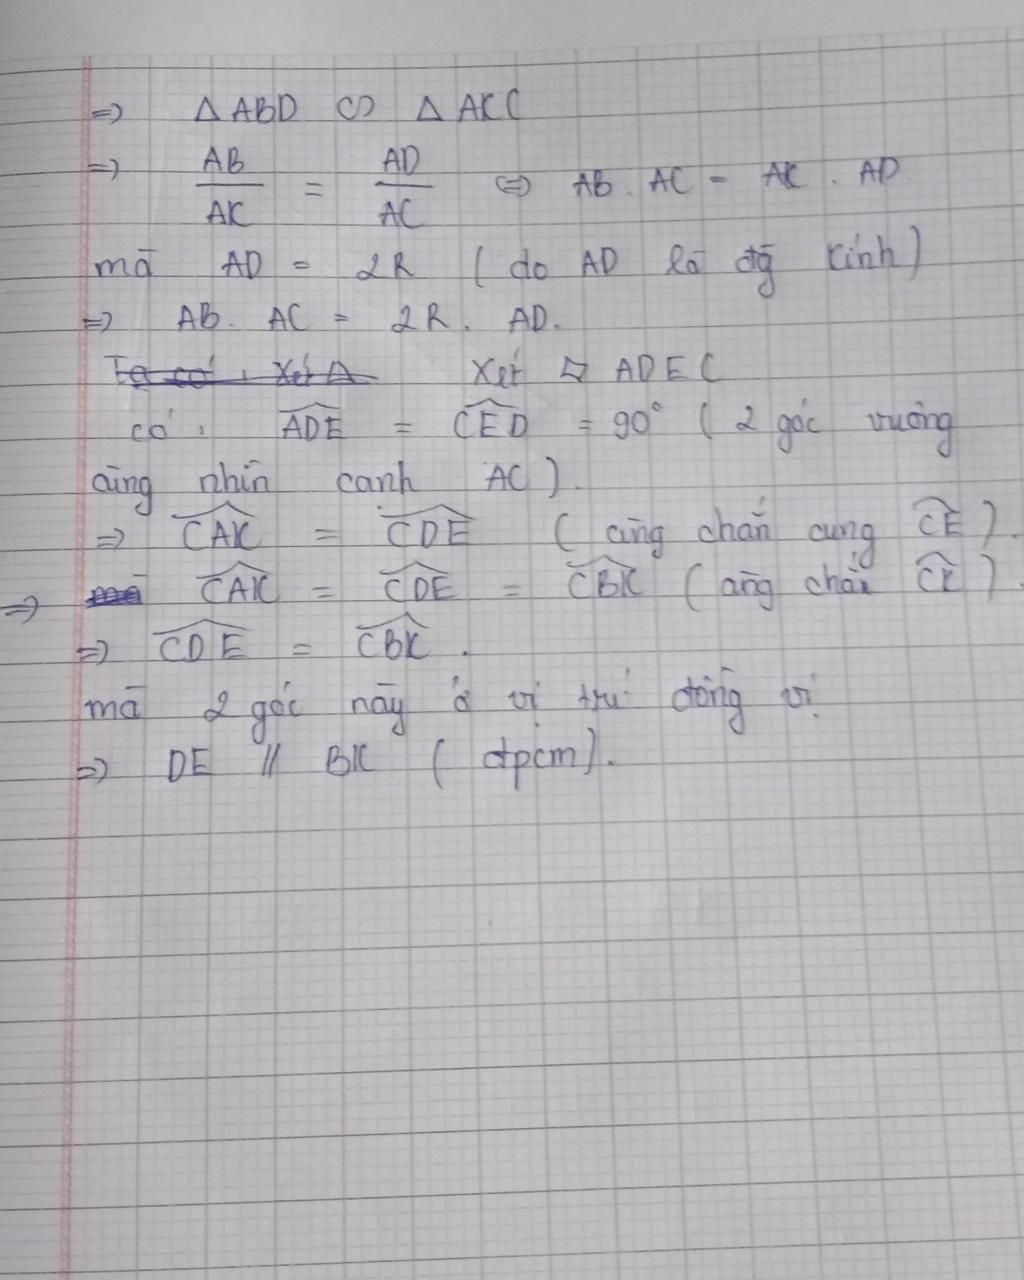 => Δ ABD ∽ Δ AKC
=> AB/AK = AD/AC <=> AB . AC = AK . AD.
mà AD = 2R ( do AD là đg kính )
=> AB. AC = 2R. AD.
Ta có: Xét Δ Xét ▱ ADEC
có: ADE = CED = 90° ( 2 góc vuông
cùng nhìn cạnh AC ).
=> CAK = CDE ( cùng chắn cung CE ).
=> CAK = CDE = CBK ( cùng chắn CK ).
=> CDE = CBK .
mà 2 góc này ở vị trí đồng vị
=> DE // BK ( đpcm ).